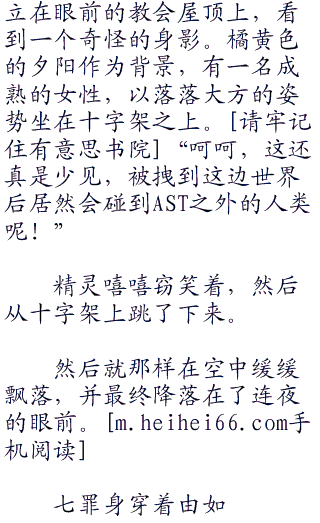 立在眼前的教会屋顶上，看
到一个奇怪的身影。橘黄色
的夕阳作为背景，有一名成
熟的女性，以落落大方的姿
势坐在十字架之上。[请牢记
住有意思书院]“呵呵，这还
真是少见，被拽到这边世界
后居然会碰到AST之外的人类
呢！”
精灵嘻嘻窃笑着，然后
从十字架上跳了下来。
然后就那样在空中缓缓
飘落，并最终降落在了连夜
的眼前。[m.heihei66.com手
机阅读]
七罪身穿着由如